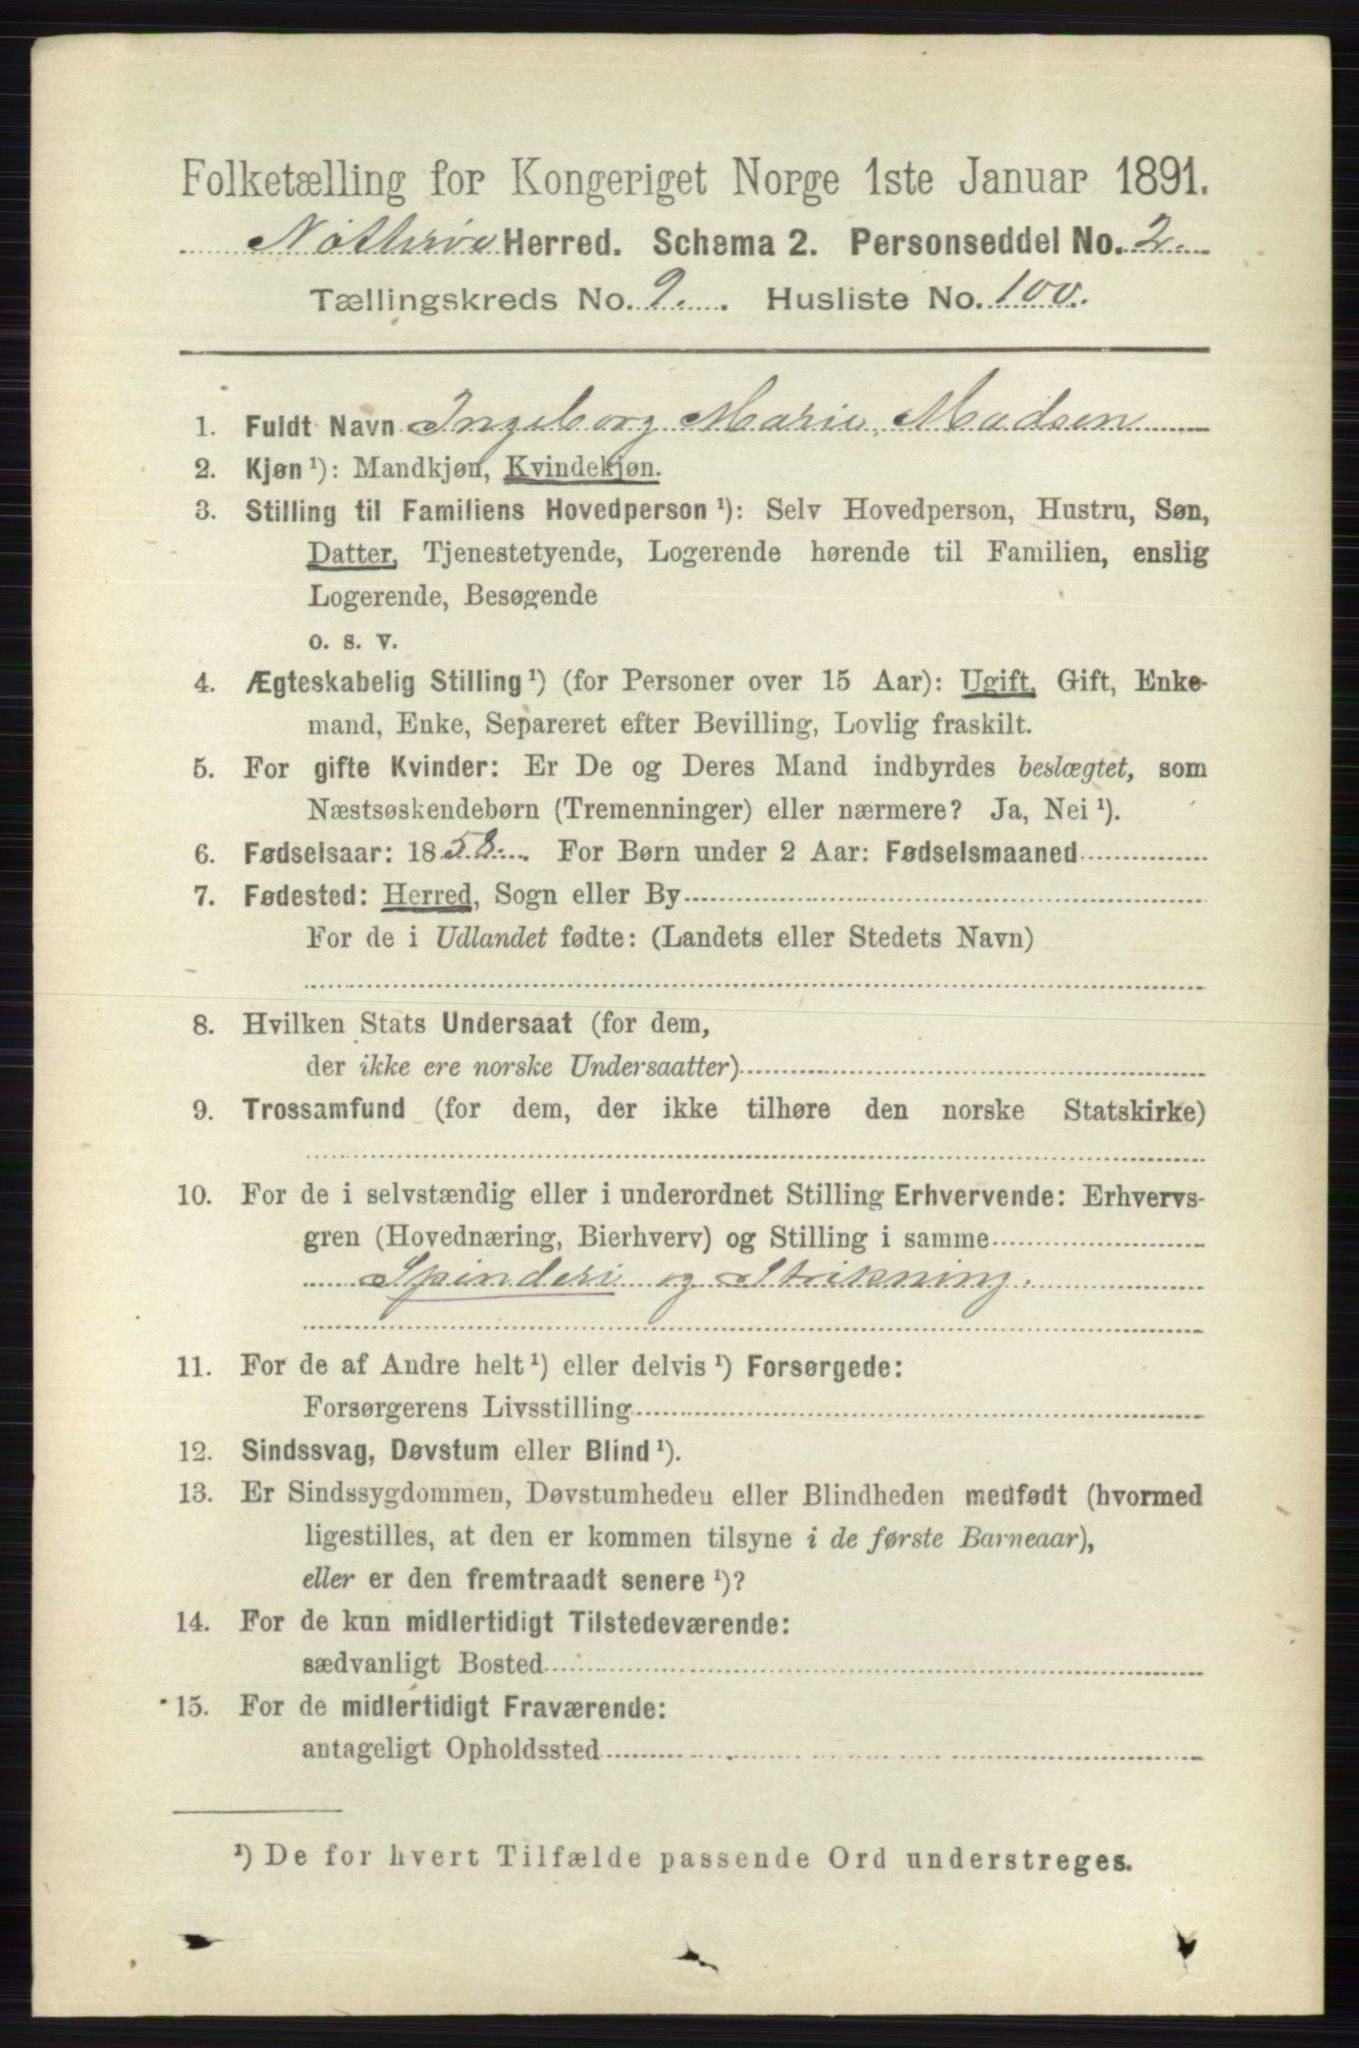 Folketælling for Kongeriget Norge 1ste Januar 1891.
Nøtterø Herred. Schema 2. Personseddel No. 2.
Tællingskreds No. 9. Husliste No. 100.
1. Fuldt Navn Ingeborg Marie Madsen
2. Kjøn ¹): Mandkjøn, Kvindekjøn.
3. Stilling til Familiens Hovedperson ¹): Selv Hovedperson, Hustru, Søn,
Datter, Tjenestetyende, Logerende hørende til Familien, enslig
Logerende, Besøgende
o. s. v.
4. Ægteskabelig Stilling ¹) (for Personer over 15 Aar): Ugift, Gift, Enke-
mand, Enke, Separeret efter Bevilling, Lovlig fraskilt.
5. For gifte Kvinder: Er De og Deres Mand indbyrdes beslægtet, som
Næstsøskendebørn (Tremenninger) eller nærmere? Ja, Nei ¹).
6. Fødselsaar: 1858. For Børn under 2 Aar: Fødselsmaaned
7. Fødested: Herred, Sogn eller By
For de i Udlandet fødte: (Landets eller Stedets Navn)
8. Hvilken Stats Undersaat (for dem,
der ikke ere norske Undersaatter)
9. Trossamfund (for dem, der ikke tilhøre den norske Statskirke)
10. For de i selvstændig eller i underordnet Stilling Erhvervende: Erhvervs-
gren (Hovednæring, Bierhverv) og Stilling i samme
Spinderi og Strikning.
11. For de af Andre helt ¹) eller delvis ¹) Forsørgede:
Forsørgerens Livsstilling
12. Sindssvag, Døvstum eller Blind ¹).
13. Er Sindssygdommen, Døvstumheden eller Blindheden medfødt (hvormed
ligestilles, at den er kommen tilsyne i de første Barneaar),
eller er den fremtraadt senere ¹)?
14. For de kun midlertidigt Tilstedeværende:
sædvanligt Bosted
15. For de midlertidigt Fraværende:
antageligt Opholdssted
¹) De for hvert Tilfælde passende Ord understreges.